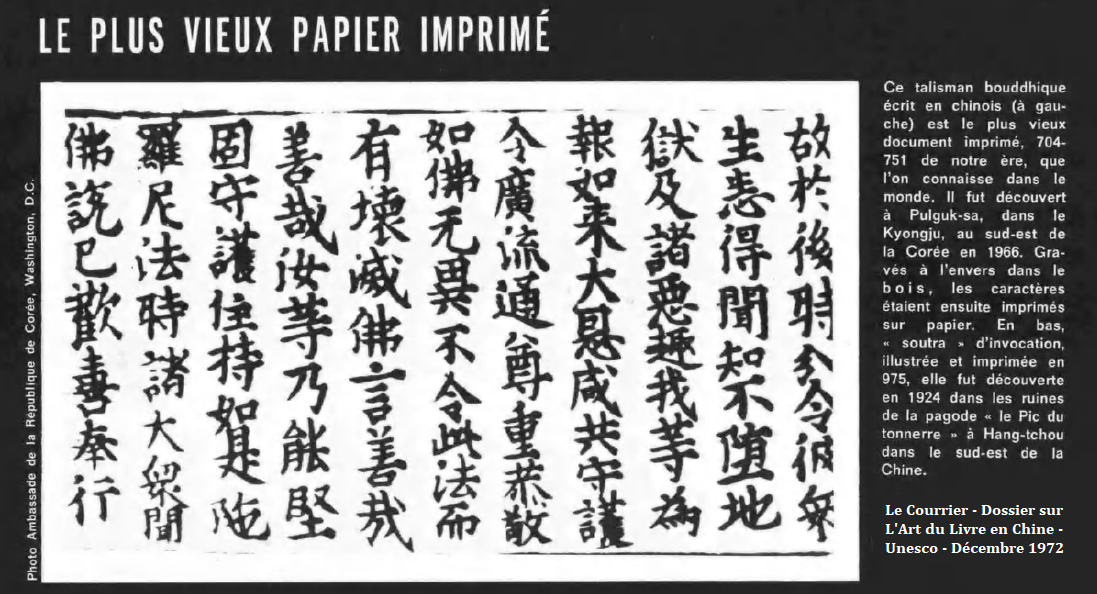 LE PLUS VIEUX PAPIER IMPRIMÉ
故於後時分令彼衆
生悉得聞知不堕地
獄及諸惡趣我等為
報如来大恩咸共守護
令廣流通尊重恭敬
如佛无異不令此法而
有壞滅佛言善哉
善哉汝等乃能堅
固守護住持如是陁
羅尼法時諸大衆聞
佛說已歡喜奉行
Photo Ambassade de la République de Corée, Washington, D.C.
Ce talisman bouddhique
écrit en chinois (à gau-
che) est le plus vieux
document imprimé, 704-
751 de notre ère, que
l'on connaisse dans le
monde. Il fut découvert
à Pulguk-sa, dans le
Kyongju, au sud-est de
la Corée en 1966. Gra-
vés à l'envers dans le
bois, les caractères
étaient ensuite imprimés
sur papier. En bas,
« soutra » d'invocation,
illustrée et imprimée en
975, elle fut découverte
en 1924 dans les ruines
de la pagode « le Pic du
tonnerre » à Hang-tchou
dans le sud-est de la
Chine.
Le Courrier - Dossier sur
L'Art du Livre en Chine -
Unesco - Décembre 1972